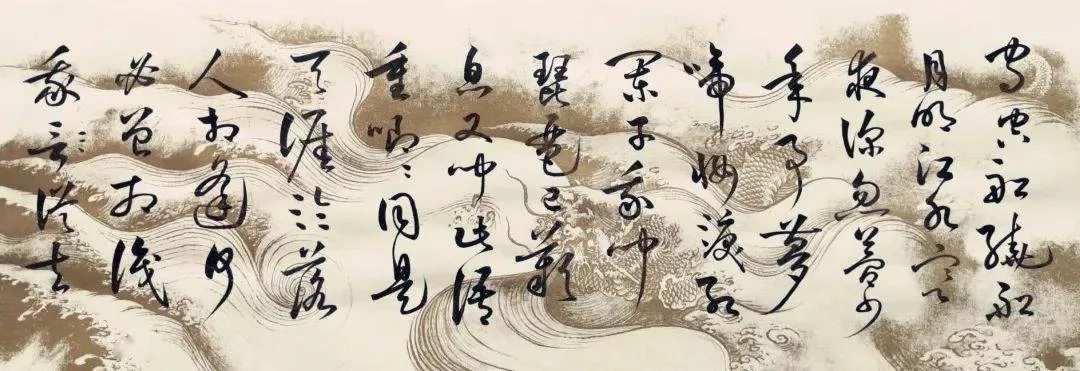 守空船繞船
月明江水寒
夜深忽夢少
年事夢
啼妝淚紅
闌干我聞
琵琶已歎
息又聞此語
重唧唧同是
天涯淪落
人相逢何
必曾相識
我從去